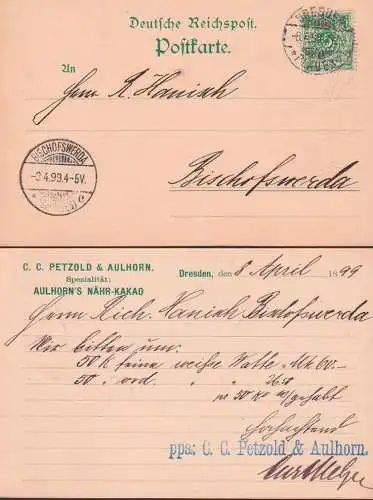 Deutsche Reichspost.
Postkarte.
An
Herrn R. Hanisch
Bischofswerda
BISCHOFSWERDA
4.99.4-5V.
C. C. PETZOLD & AULHORN.
Spezialität:
AULHORN'S NÄHR-KAKAO
Dresden, den 8 April 1899
Herrn Rich. Hanisch Bischofswerda
Wir bitten um:
50 K feine weisse Watte Mk 60.-
50 " ord. " "
ppa: C. C. Petzold & Aulhorn.